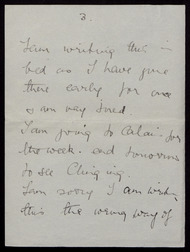 3.
I am writing this in
bed as I have gone
there early for once
I am very tired.
I am going to for
the week. and tomorrow
to see
I am sorry I am writing
this the wrong way of